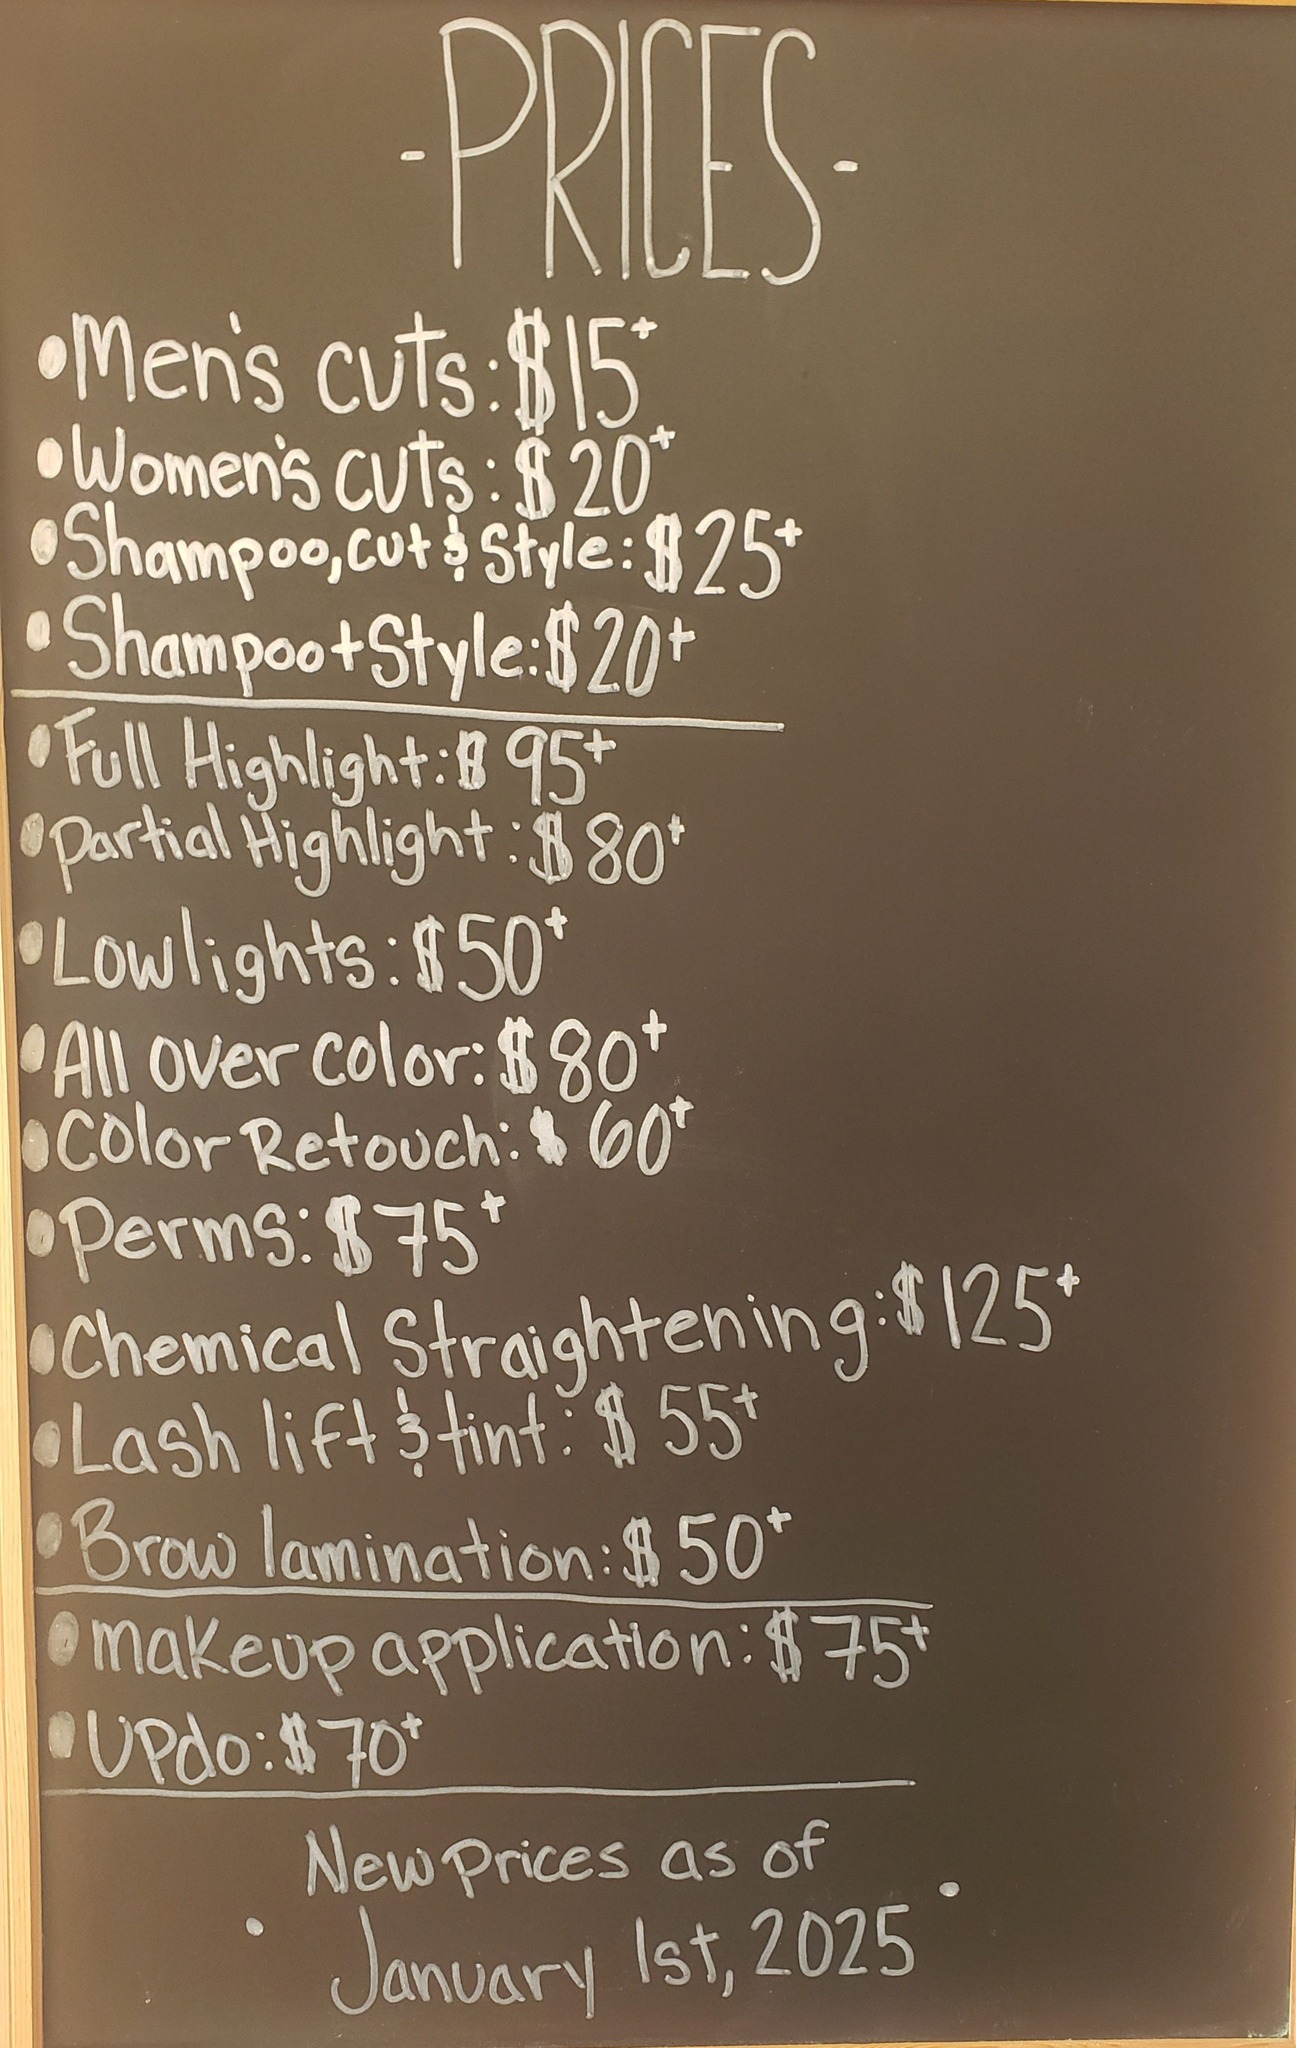 -PRICES-
•Men's cuts: $15+
•Women's cuts: $20+
•Shampoo, cut & Style: $25+
•Shampoo+Style: $20+
•Full Highlight: $95+
•Partial Highlight: $80+
•Lowlights: $50+
•All over color: $80+
•Color Retouch: $60+
•Perms: $75+
•Chemical Straightening: $125+
•Lash lift & tint: $55+
•Brow lamination: $50+
•makeup application: $75+
•Updo: $70+
New prices as of
• January 1st, 2025 •